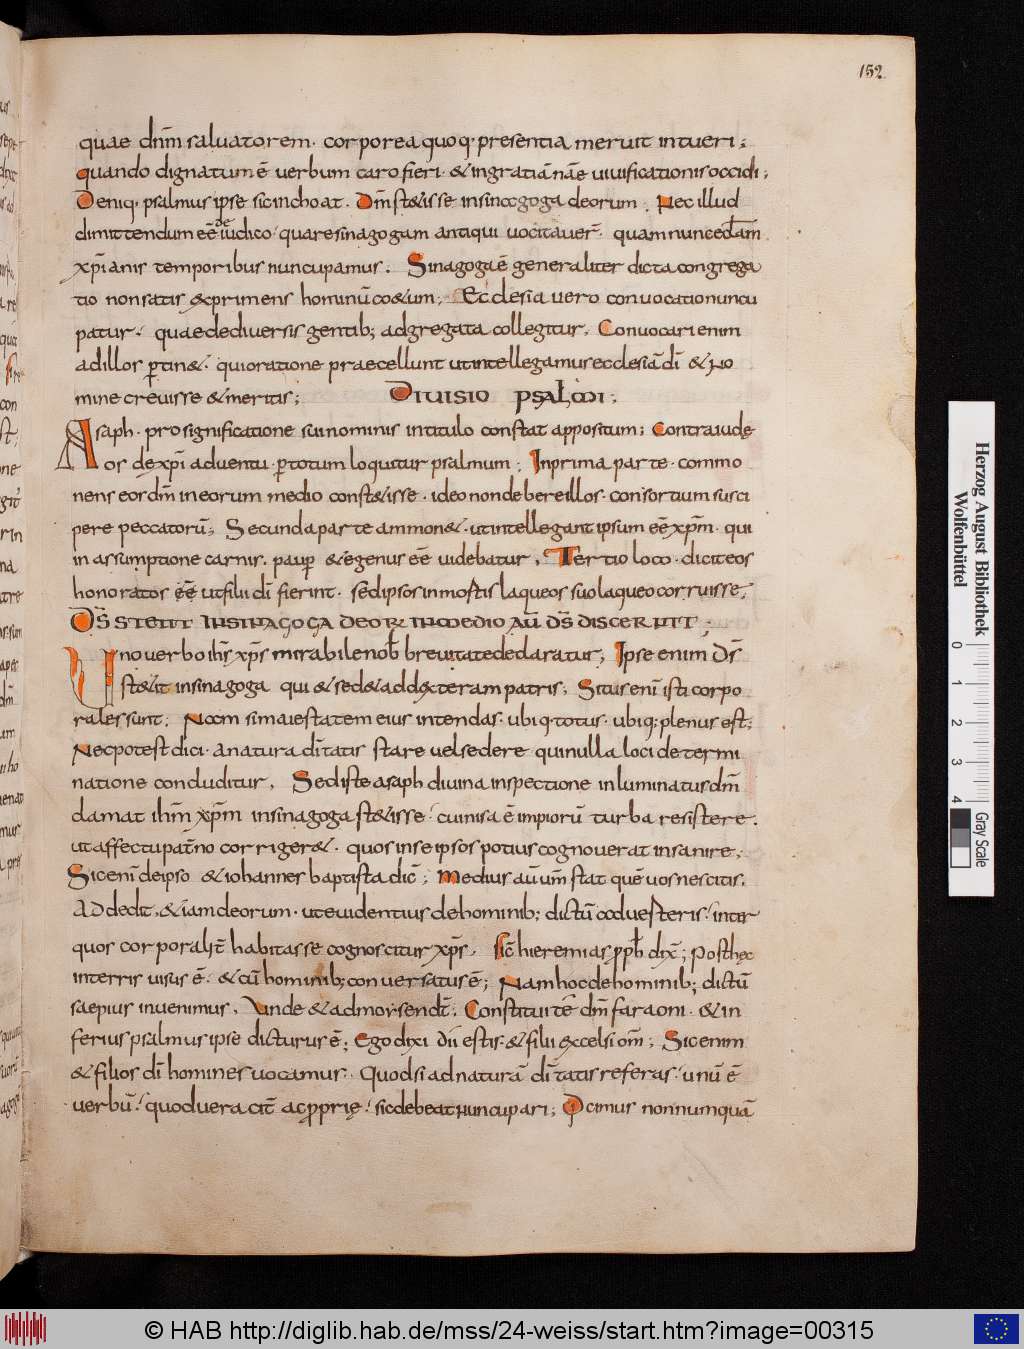 152
quae dn̄m saluatorem · corporea quoq· presentia meruit intueri ;
quando dignatum ē uerbum caro fieri · & ingratiā nāe uiuificationis occidi ;
Deniq· psalmus ipse sic inchoat · Dm̄ st&isse in sinagoga deorum ; Nec illud
dimittendum eē de iudico · quare sinagogam antiqui uocitauer̄ · quam nunc
xp̄ianis temporibus nuncupamus . Sinagoga ē generaliter dicta congrega
tio non satis exprimens hominū co&um ; Ecclesia uero conuocatio nuncu
patur · quae de diuersis gentib; adgregata collegitur . Conuocari enim
ad illos p̄tin& · qui oratione praecellunt ut intellegamus ecclesiā dī & no
mine creuisse & meritis ; Diuisio psalmi ;
Asaph · pro significatione sui nominis in titulo constat appositum ; Contra iudę
os de xp̄i aduentu · p̄ totum loquitur psalmum ; In prima parte · commo
nens eos dm̄ in eorum medio const&isse · ideo non debere illos · consortium susci
pere peccatorū ; Secunda parte ammon& · ut intellegant ipsum eē xp̄m · qui
in assumptione carnis · paup̄ & egenus eē uidebatur . Tertio loco · dicit eos
honoratos eē ut filii dī fierint · sed ipsos in mostis laqueos suo laqueo corruisse ;
DS̄ STETIT IN SINAGOGA DEOR IN MEDIO AŪ DS̄ DISCERNIT ;
Uno uerbo ih̄s xp̄s mirabile nob̄ breuitate declaratur ; Ipse enim ds̄
st&it in sinagoga qui & sed& ad dexteram patris ; Situs enī isti corpo
rales sunt ; Nam si maiestatem eius intendas · ubiq· totus · ubiq; plenus est ;
Nec potest dici · a natura dītatis stare uel sedere qui nulla loci determi
natione concluditur . Sed iste asaph diuina inspectione inluminatus dm̄
clamat ih̄m xp̄m in sinagoga st&isse · cui nisa ē impiorū turba resistere .
ut affectu pat̄no corriger& · quos in se ipsos potius cognouerat insanire ;
Sic enī de ipso & iohannes baptista dic̄ ; Medius aū ūm stat quē uos nescitis .
Addedit · & iam deorum · ut euidentius de hominib; dictū aduesteris · inter
quos corporalit̄ habitasse cognoscitur xp̄s . Sic̄ hieremias pph̄ dix̄ ; Post hęc
in terris uisus ē · & cū hominib; conuersatus ē ; Nam hoc de hominib; dictū
saepius inuenimus . Unde & ad morsendt̄ . Constitui te dm̄ faraoni · & in
ferius psalmus ipse dicturus ē ; Ego dixi dii estis · & filii excelsi om̄ ; Sic enim
& filios dī homines uocamus · Quod si ad naturā dītatis referas · unū ē
uerbū · quod ueracit̄ ac p̄prię · sic debeat nuncupari ; Dicimus non numquā
Herzog August Bibliothek
Wolfenbüttel
0 1 2 3 4
Gray Scale
© HAB http://diglib.hab.de/mss/24-weiss/start.htm?image=00315